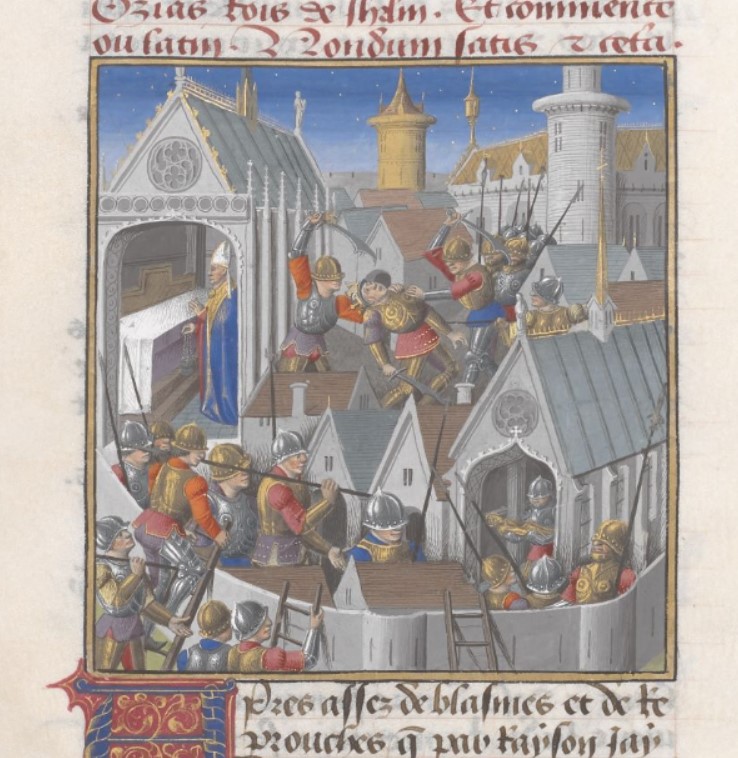 Ozias Rois de Jhrlm. Et commence
ou latin. Nondum satis &cetera.
Apres assez de blasmes et de re
prouches q̄ par raison jay